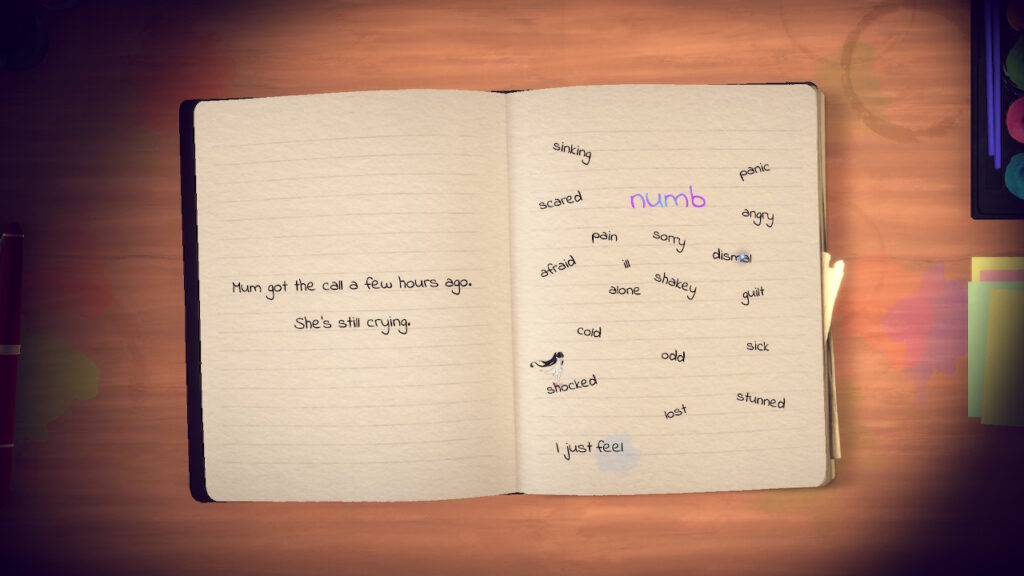 Mum got the call a few hours ago.
She's still crying.
sinking
panic
scared
numb
angry
pain
sorry
dismal
afraid
ill
shakey
alone
guilt
cold
sick
odd
shocked
stunned
lost
I just feel